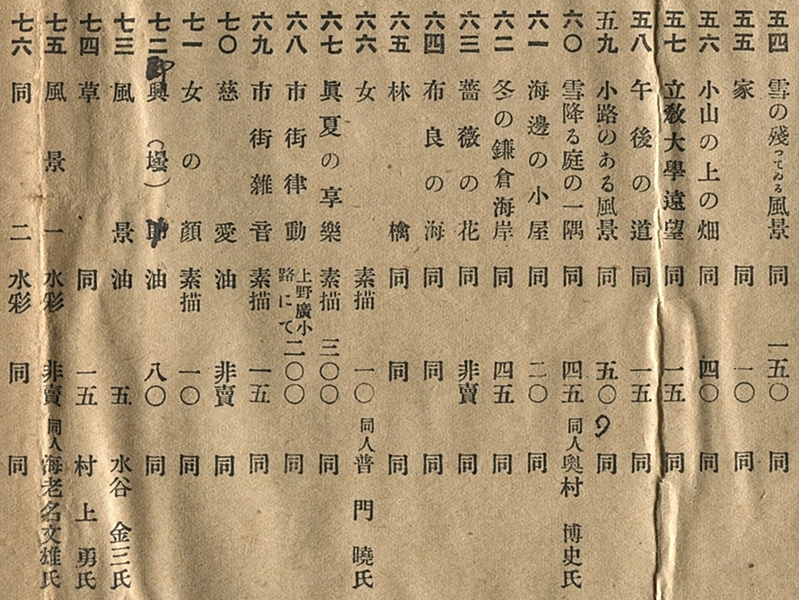 五四 雪の殘つてゐる風景 同 一五〇 同
五五 家 同 一〇 同
五六 小山の上の畑 同 四〇 同
五七 立敎大學遠望 同 一五 同
五八 午後の道 同 一五 同
五九 小路のある風景 同 五〇 同
六〇 雪降る庭の一隅 同 四五 同人 奥村博史氏
六一 海邊の小屋 同 二〇 同
六二 冬の鎌倉海岸 同 四五 同
六三 薔薇の花 同 非賣 同
六四 布良の海 同 同 同
六五 林檎 同 同 同
六六 女 素描 一〇 同人 普門曉氏
六七 眞夏の享樂 素描 三〇〇 同
六八 市街律動 上野廣小路にて 二〇〇 同
六九 市街雜音 素描 一五 同
七〇 慈愛 油 非賣 同
七一 女の顏 素描 一〇 同
七二 卽興（壜） 油 八〇 同
七三 風景 油 五 水谷金三氏
七四 草 同 一五 村上勇氏
七五 風景一 水彩 非賣 同人 海老名文雄氏
七六 同二 水彩 同 同